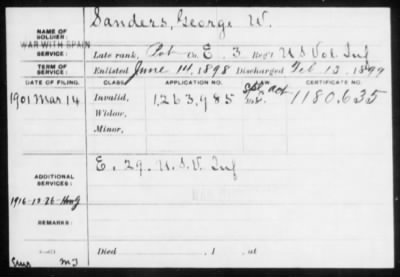 Sanders, George W.
NAME OF SOLDIER:
WAR WITH SPAIN
SERVICE: Late rank, Pvt Co. E. 3 Reg't U S Vol Inf
TERM OF SERVICE: Enlisted June 14, 1898 Discharged Feb 13, 1899
DATE OF FILING. CLASS. APPLICATION NO. LAW. CERTIFICATE NO.
1901 Mar 14 Invalid, 1,263,985 Spl. act 1180,635
Widow,
Minor,
ADDITIONAL SERVICES: E. 29. U.S.V. Inf
1916-12-26
REMARKS:
Died , 1 , at